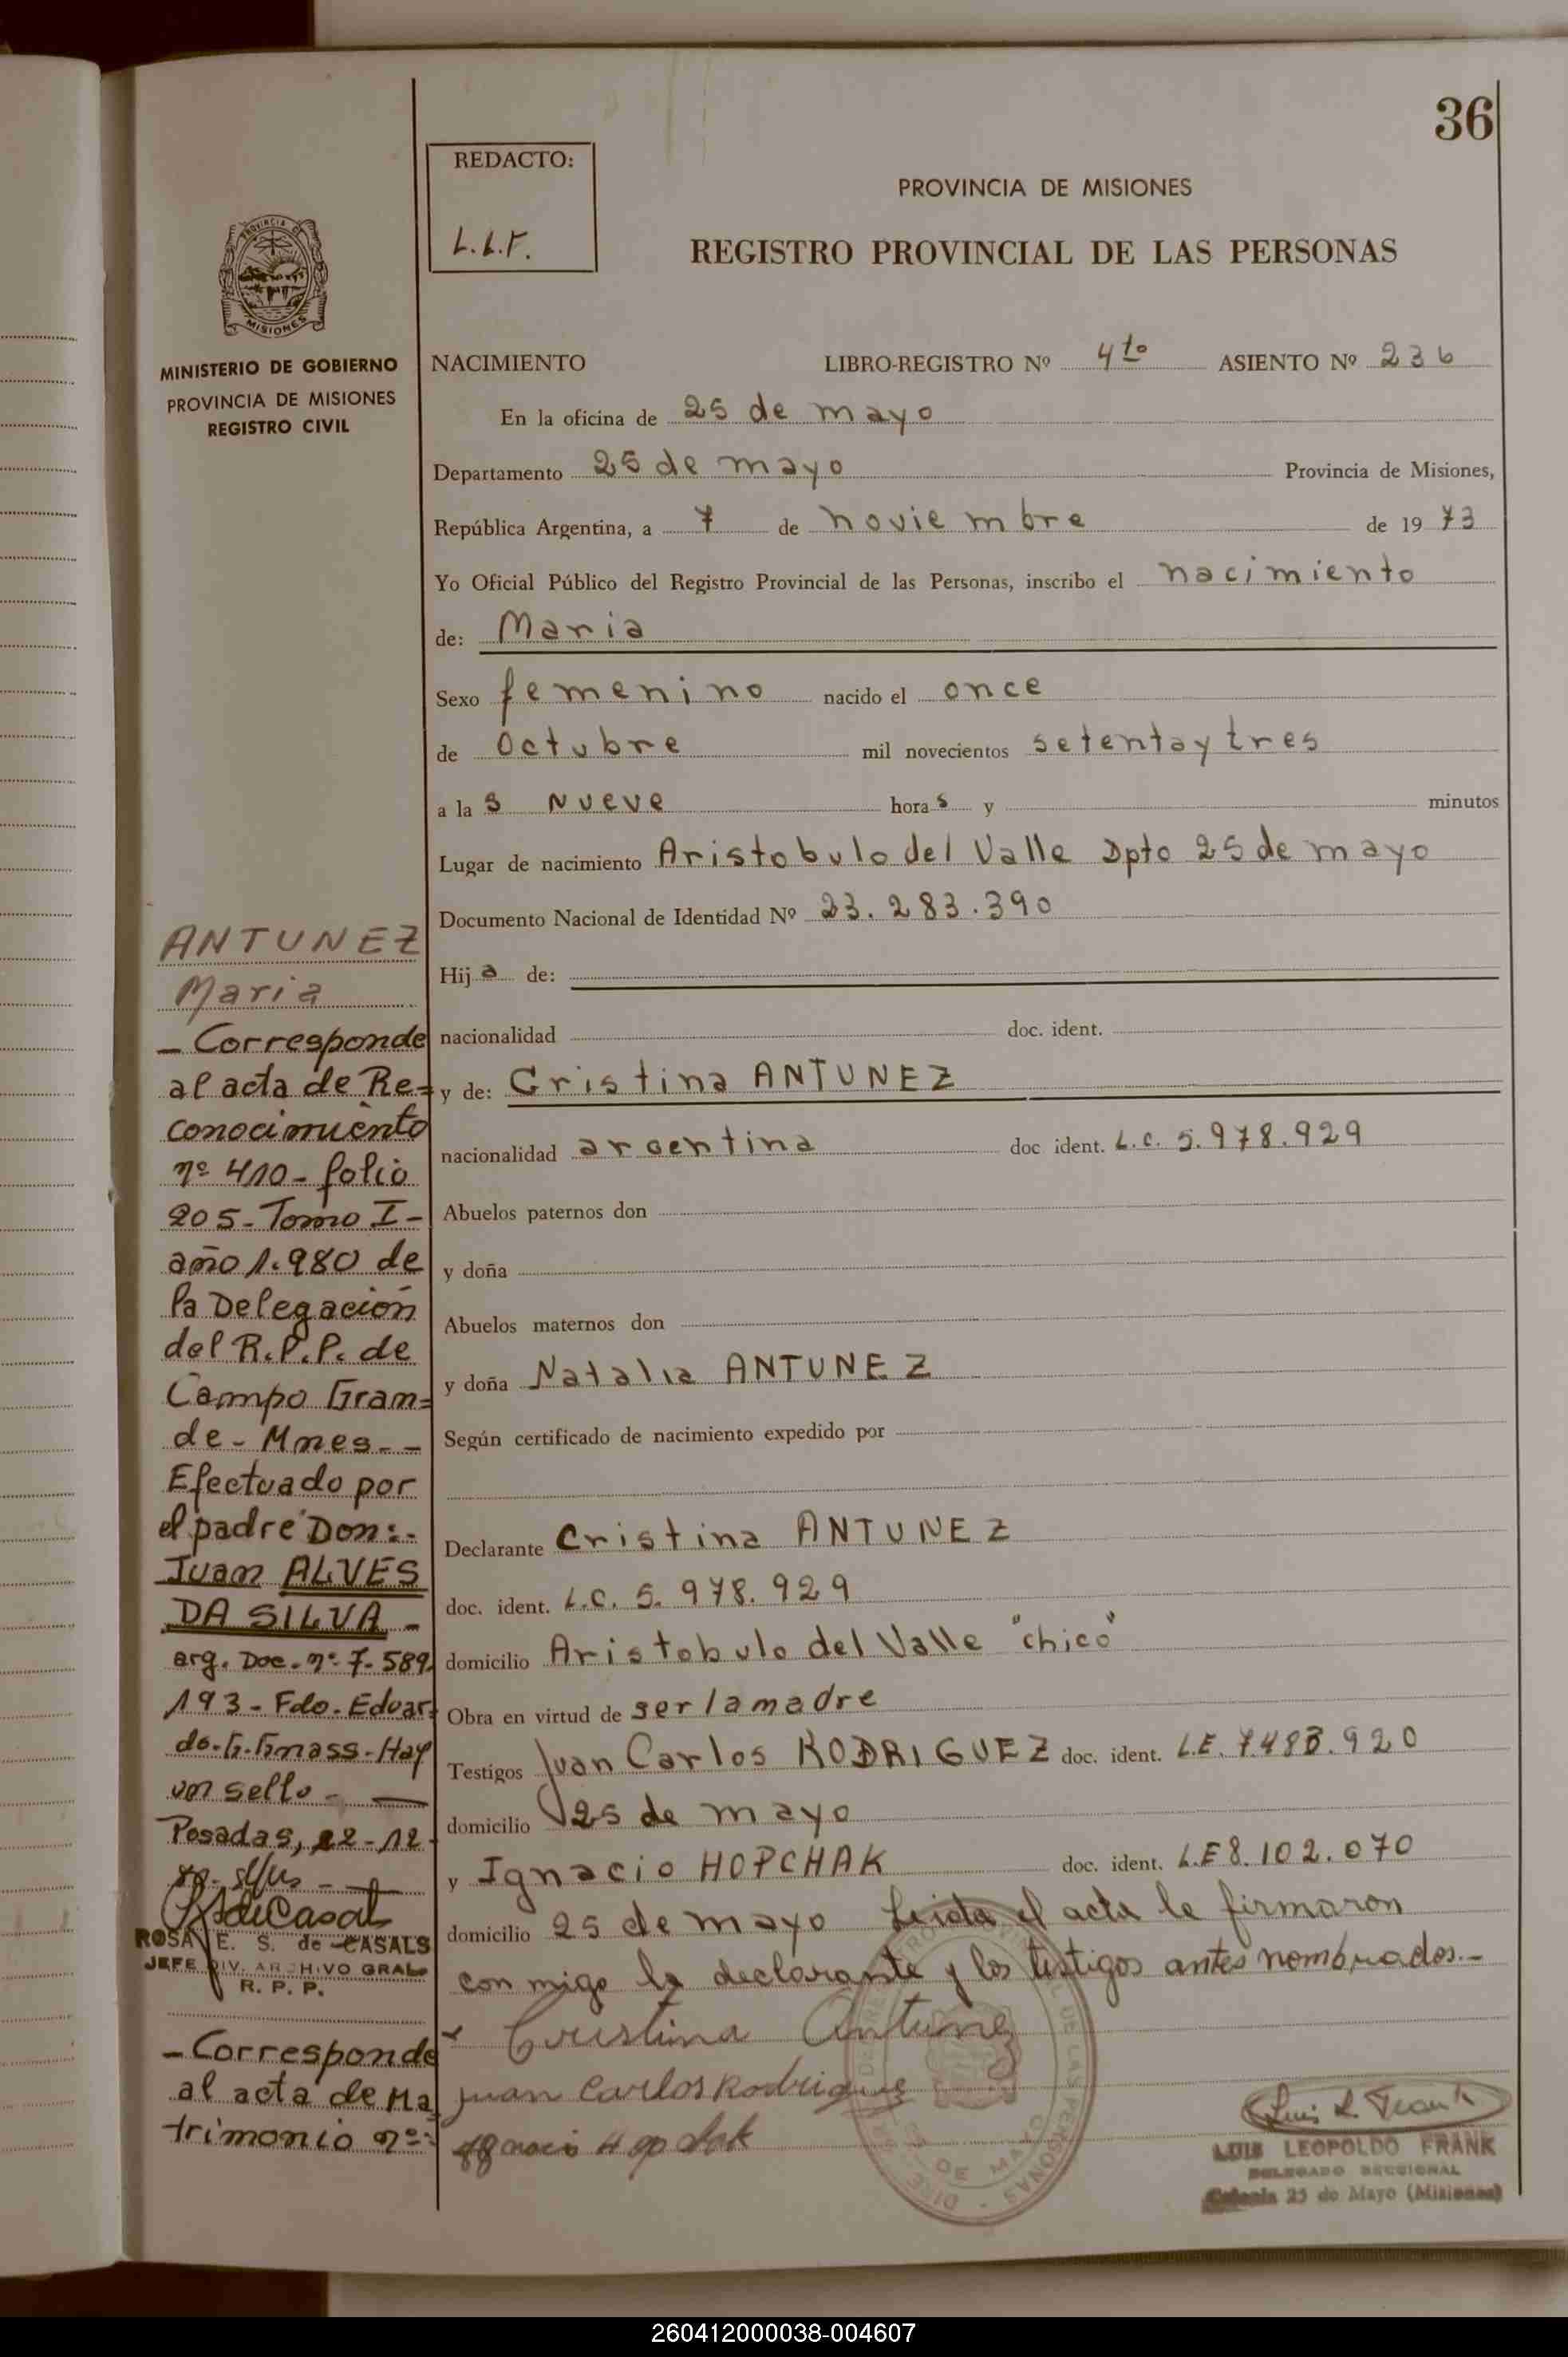 36
REDACTO:
L.L.F.
PROVINCIA DE MISIONES
REGISTRO PROVINCIAL DE LAS PERSONAS
MISIONES
MINISTERIO DE GOBIERNO
PROVINCIA DE MISIONES
REGISTRO CIVIL
NACIMIENTO LIBRO-REGISTRO Nº 4to ASIENTO Nº 236
En la oficina de 25 de mayo
Departamento 25 de mayo Provincia de Misiones,
República Argentina, a 7 de noviembre de 1973
Yo Oficial Público del Registro Provincial de las Personas, inscribo el nacimiento
de: Maria
Sexo femenino nacido el once
de Octubre mil novecientos setenta y tres
a las Nueve horas y minutos
Lugar de nacimiento Aristobulo del Valle Dpto 25 de mayo
Documento Nacional de Identidad Nº 23.283.390
Hija de:
nacionalidad doc. ident.
y de: Cristina ANTUNEZ
nacionalidad argentina doc ident. L.C. 5.978.929
Abuelos paternos don
y doña
Abuelos maternos don
y doña Natalia ANTUNEZ
Según certificado de nacimiento expedido por
Declarante Cristina ANTUNEZ
doc. ident. L.C. 5.978.929
domicilio Aristobulo del Valle "chico"
Obra en virtud de ser la madre
Testigos Juan Carlos RODRIGUEZ doc. ident. L.E. 7.483.920
domicilio 25 de mayo
y Ignacio HOPCHAK doc. ident. L.E 8.102.070
domicilio 25 de mayo Leida el acta la firmaron
con migo la declarante y los testigos antes nombrados.-
Cristina Antunez
Juan Carlos Rodriguez
LUIS LEOPOLDO FRANK
DELEGADO SECCIONAL
Colonia 25 de Mayo (Misiones)
ANTUNEZ
Maria
- Corresponde
al acta de Re=
conocimiento
nº 410 - folio
205 - Tomo I -
año 1.980 de
la Delegación
del R.P.P. de
Campo Gran=
de - Mnes. -
Efectuado por
el padre Don:-
Juan ALVES
DA SILVA -
arg. Doc. nº 7.589.
193 - Fdo. Eduar=
do. G. Gnass - Hay
un sello -
Posadas, 22-12-
ROSA E. S. de CASALS
JEFE DIV. ARCHIVO GRAL
R. P. P.
- Corresponde
al acta de Ma
trimonio nº:
260412000038-004607